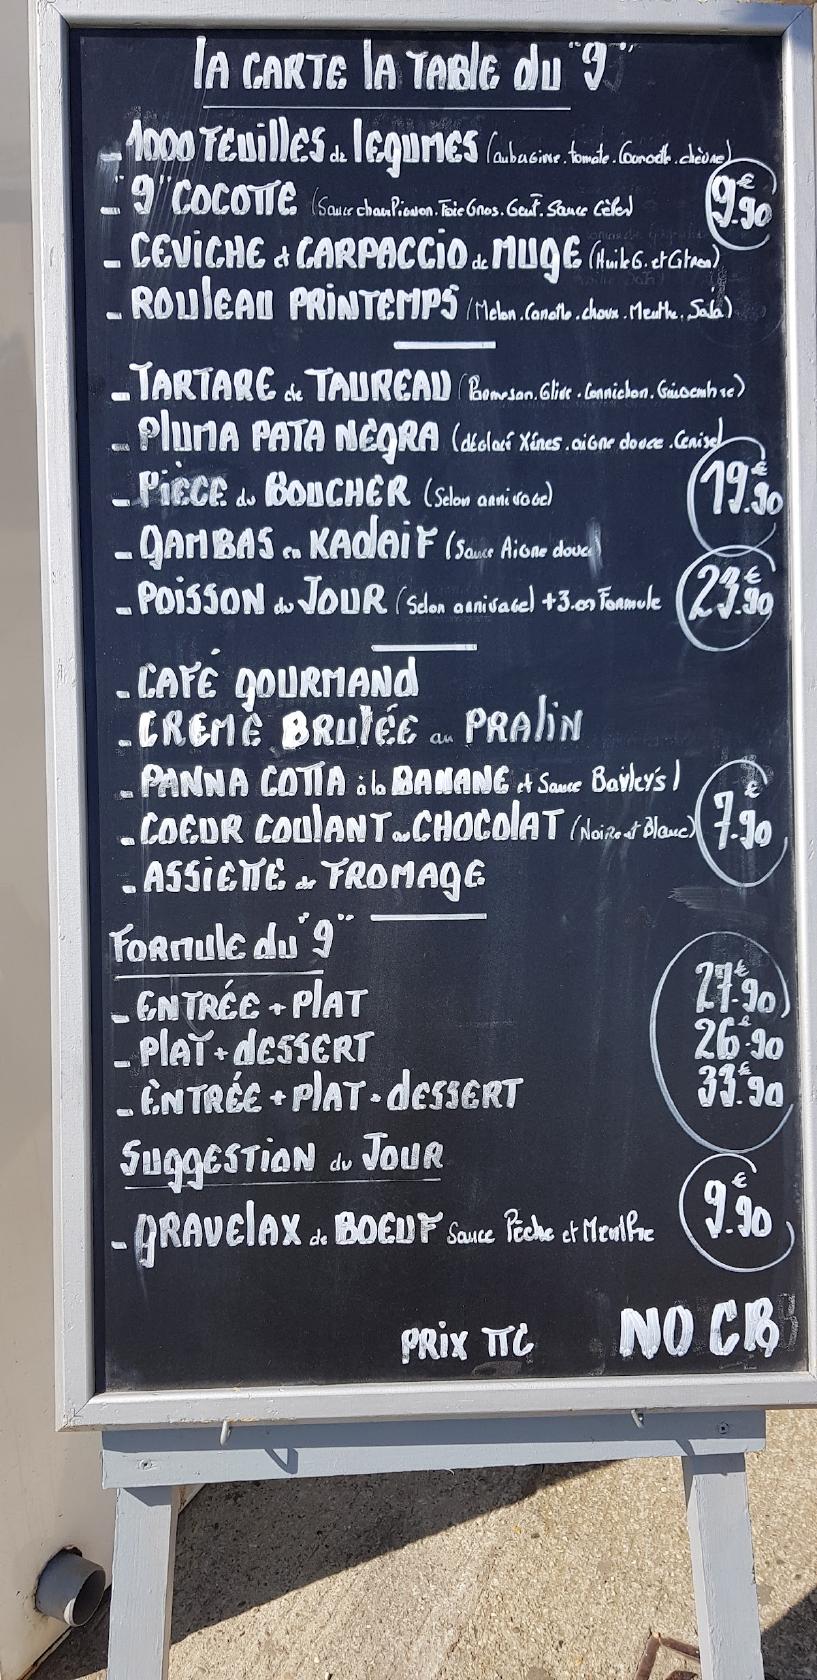 LA CARTE LA TABLE du "9"
- 1000 FEUILLES de LEGUMES (aubergine. tomate. Carotte. chèvre)
- "9" COCOTTE (Sauce champignon. Foie Gras. Oeuf. Sauce Cèpes) 9€.90
- CEVICHE et CARPACCIO de MUGE (Huile G. et Citron)
- ROULEAU PRINTEMPS (Melon. Carotte. choux. Menthe. Sala)
- TARTARE de TAUREAU (Parmesan. Olive. Cornichon. Gingembre)
- PLUMA PATA NEGRA (déglacé Xérès. aigre douce. Cerise)
- PIÈCE du BOUCHER (Selon arrivage) 19€.90
- GAMBAS en KADAIF (Sauce Aigre douce)
- POISSON du JOUR (Selon arrivage) +3.00 Formule 23€.90
- CAFÉ GOURMAND
- CREME BRULÉE au PRALIN
- PANNA COTTA à la BANANE et Sauce Bailey's
- COEUR COULANT au CHOCOLAT (Noir et Blanc) 7€.90
- ASSIETTE de FROMAGE
FORMULE du "9"
- ENTRÉE + PLAT 27€.90
- PLAT + dESSERT 26€.90
- ENTRÉE + PLAT + dESSERT 33€.90
SUGGESTION du JOUR
- GRAVELAX de BOEUF Sauce Pêche et Menthe 9€.90
PRIX TTC NO CB